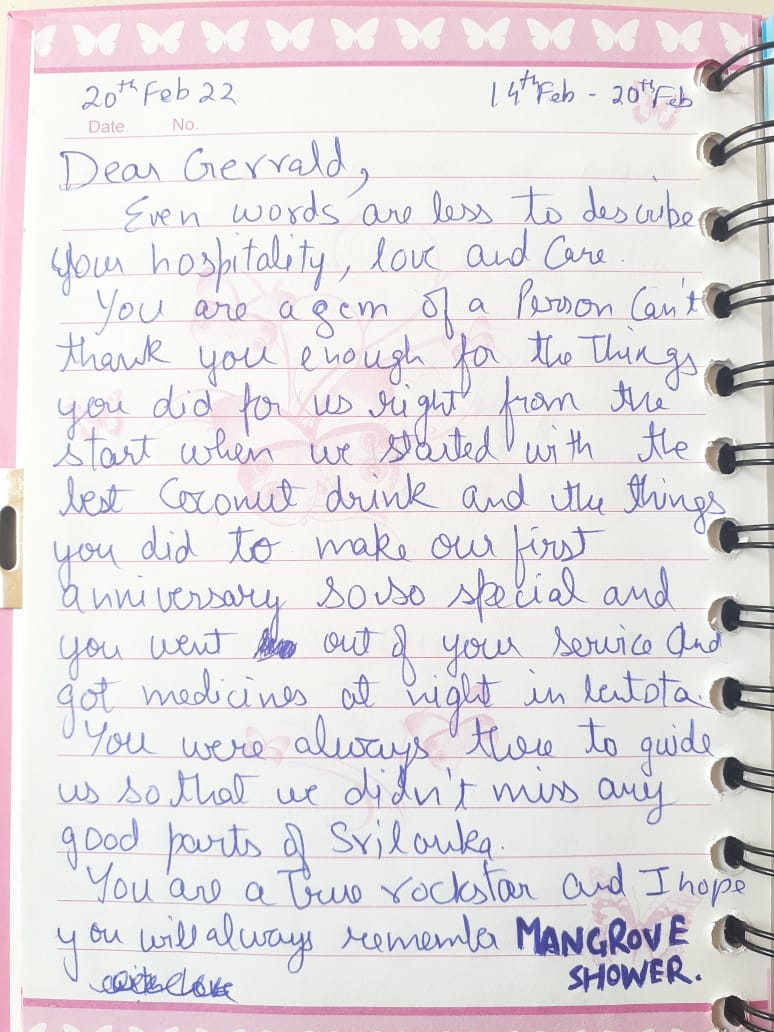 20th Feb 22 14th Feb - 20th Feb
Date. No.
Dear Gerrald,
Even words are less to describe
your hospitality, love and Care.
You are a gem of a Person Can't
thank you enough for the Things
you did for us right from the
start when we started with the
best Coconut drink and the things
you did to make our first
anniversary so so special and
you went out of your service and
got medicines at night in bentota.
You were always there to guide
us so that we didn't miss any
good parts of Srilanka.
You are a True rockstar and I hope
you will always remember MANGROVE
SHOWER.